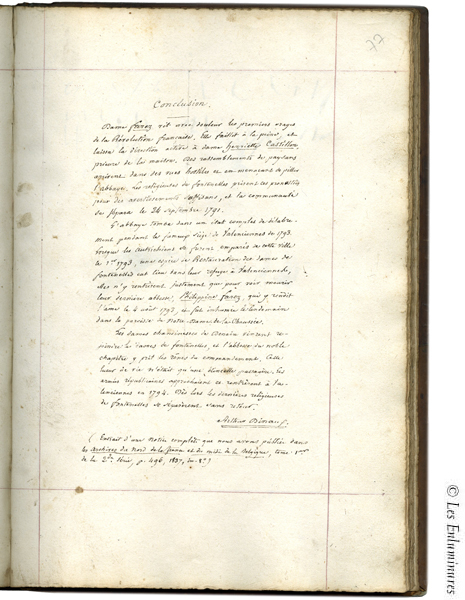 77
Conclusion.
Dame Farez vit avec douleur les premiers orages
de la Révolution française. Elle faillit à la peine, et
laissa la direction à dame Henriette Castillon,
prieure de la maison. Des rassemblements de paysans
agirent dans des vues hostiles et en menaçant de piller
l'abbaye. Les religieuses de fontenelles prirent ces
pour des avertissements suffisans, et la communauté
se sépara le 26 septembre 1791.
L'abbaye tomba dans un état complet de délabre-
ment pendant le fameux siège de Valenciennes de 1793.
Lorsque les Autrichiens se furent emparés de cette ville
le 1er 1793, une espèce de Restauration des dames de
fontenelles eut lieu dans leur refuge à Valenciennes,
elles n'y rentrèrent justement que pour voir mourir
leur dernière abbesse, Philippine Farez, qui y rendit
l'âme le 2 août 1793, et fut inhumée le lendemain
dans la paroisse de Notre-Dame de la Chaussée.
Les dames chanoinesses de Denain vinrent
les dames de fontenelles, et l'abbesse du noble
chapitre y prit les rênes du commandement. Cette
lueur de vie n'était qu'une étincelle passagère. Les
armées républicaines approchaient et rentrèrent à Va-
lenciennes en 1794. Dès lors les dernières religieuses
de fontenelles se séparèrent sans retour.
Arthur Dinaux.
( Extrait d'une Notice complète que nous avons publiée dans
les Archives du Nord de la france et du midi de la Belgique, tome 1er
de la 2e Série, p. 496, 1837, in-8°)
© Les Enluminures